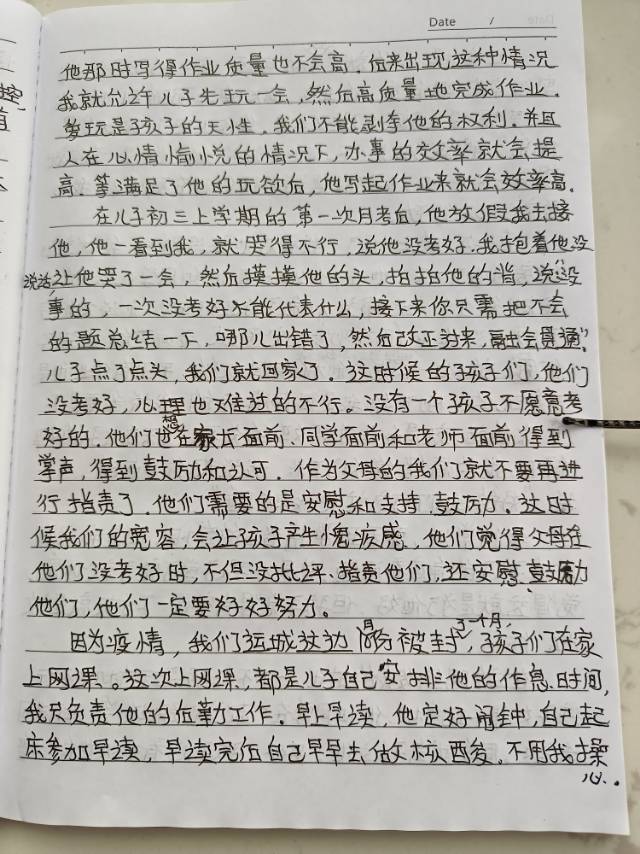 Date /
他那时写得作业质量也不会高。后来出现这种情况
我就允许儿子先玩一会，然后高质量地完成作业。
爹玩是孩子的天性，我们不能剥夺他的权利，并且
人在心情愉悦的情况下，办事的效率就会提
高。等满足了他的玩欲后，他写起作业来就会效率高。
在儿子初三上学期的第一次月考后，他放假我去接
他，他一看到我，就哭得不行，说他没考好。我抱着他没
说话让他哭了一会，然后摸摸他的头，拍拍他的背，说"没
事的，一次没考好不能代表什么，接下来你只需把不会
的题总结一下，哪儿出错了，然后改正过来，融会贯通"。
儿子点了点头，我们就回家了。这时候的孩子们，他们
没考好，心理也难过的不行。没有一个孩子不愿意考
好的，他们也想在家长面前、同学面前和老师面前得到
掌声，得到鼓励和认可。作为父母的我们就不要再进
行指责了，他们需要的是安慰和支持、鼓励。这时
候我们的宽容，会让孩子产生愧疚感，他们觉得父母在
他们没考好时，不但没批评、指责他们，还安慰、鼓励
他们，他们一定要好好努力。
因为疫情，我们运城这边11月份被封了一个月，孩子们在家
上网课。这次上网课，都是儿子自己安排他的作息时间，
我只负责他的后勤工作。早上早读，他定好闹钟，自己起
床参加早读，早读完后自己早早去做核酸，不用我操
心。